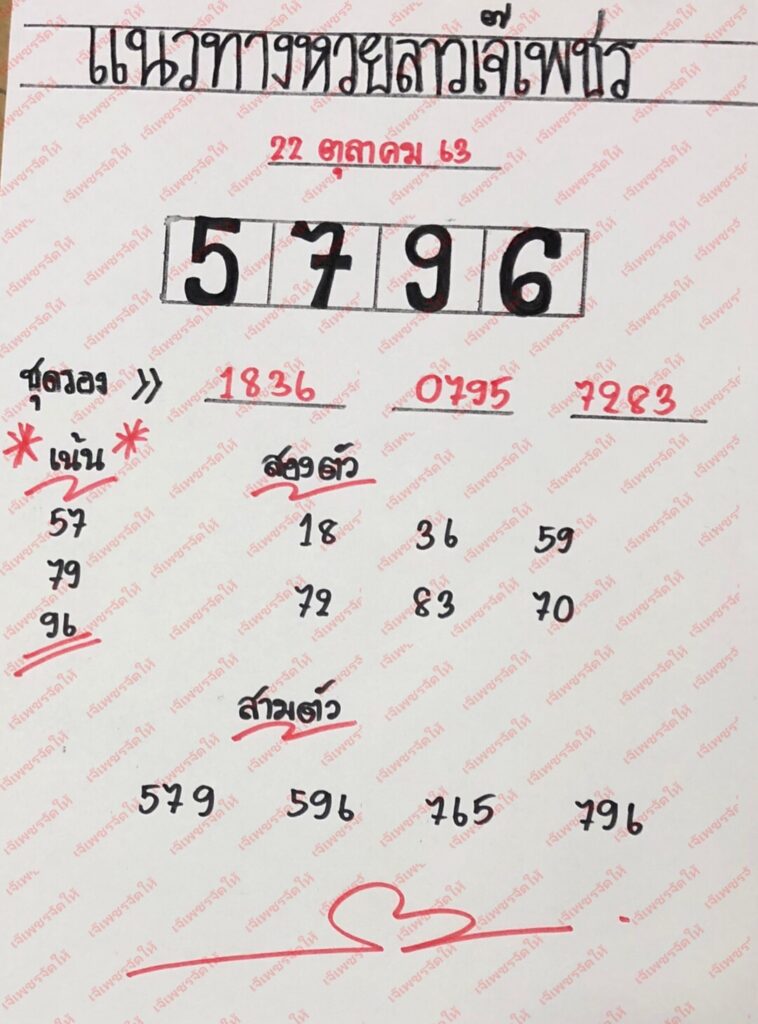 แนวทางหวยลาวเจ๊เพชร
22 ตุลาคม 63
5 7 9 6
ชุดรอง >> 1836 0795 7283
* เน้น * สองตัว
57 18 36 59
79 72 83 70
96
สามตัว
579 596 765 796
เจ๊เพชรจัดให้